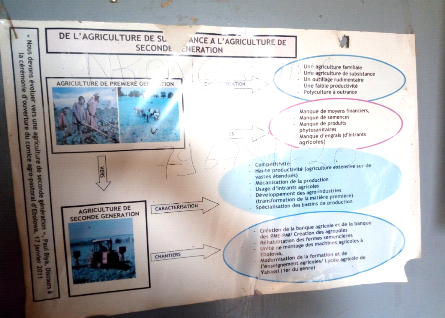 DE L'AGRICULTURE DE SU TANCE A L'AGRICULTURE DE
SECONDE GENERATION
AGRICULTURE DE PREMIERE GENERATION
- Une agriculture familiale
- Une agriculture de subsistance
- Un outillage rudimentaire
- Une faible productivité
- Polyculture à outrance
- Manque de moyens financiers,
- Manque de semences
- Manque de produits
phytosanitaires
- Manque d'engrais (d'intrants
agricoles)
VERS
AGRICULTURE DE
SECONDE GENERATION
CARACTERISATION
- Compétitivité
- Haute productivité (agriculture extensive sur de
vastes étendues)
- Mécanisation de la production
- Usage d'intrants agricoles
- Développement des agro-industries
(transformation de la matière première)
- Spécialisation des bassins de production
CHANTIERS
- Création de la banque agricole et de la banque
des PME-PMI/ Création des agropoles
- Réhabilitation des fermes semencières
- Unité de montage des machines agricoles à
Ebolowa.
- Modernisation de la formation et de
l'enseignement agricoles/ Lycée agricole de
Yabassi (1er du genre)
« Nous devons évoluer vers une agriculture de seconde génération », Paul Biya, Discours à
la cérémonie d'ouverture du comice agro-pastoral d'Ebolowa, 17 janvier 2011